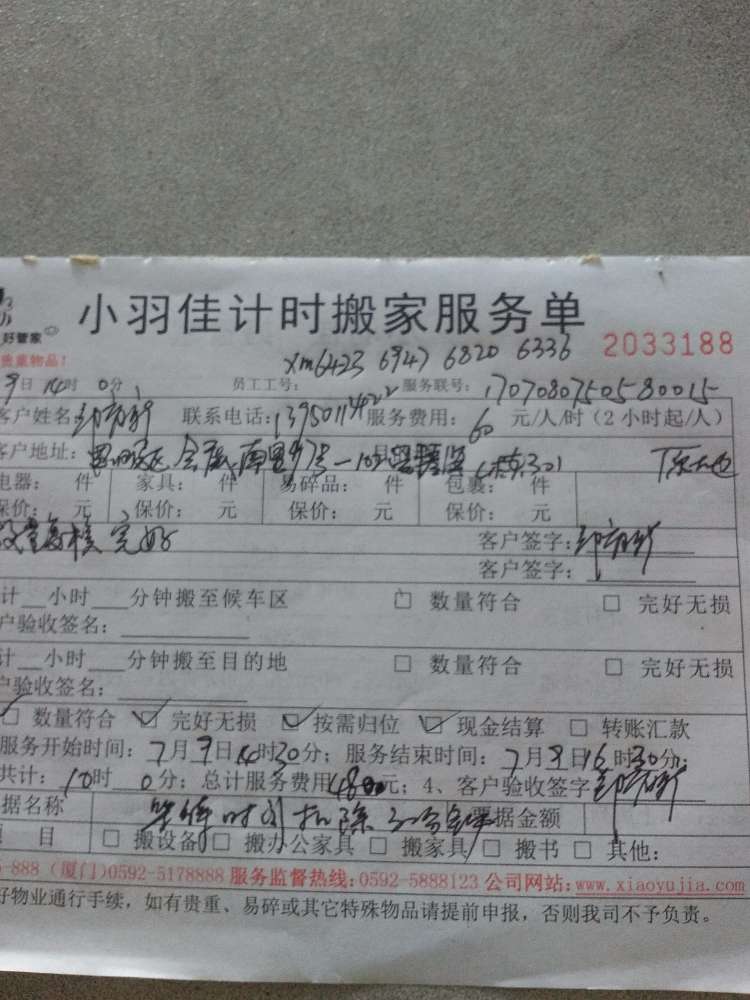 好管家
小羽佳计时搬家服务单
贵重物品!
xm6423 6947 6820 6336
2033188
9日14时0分 员工工号: 服务联号:1707080750580015
客户姓名: 联系电话:13950114022 服务费用:60元/人/时(2小时起/人)
客户地址: 南里97号
电器: 件 家具: 件 易碎品: 件 包裹: 件
保价: 元 保价: 元 保价: 元 保价: 元
完好 客户签字:
客户签字:
计__小时__分钟搬至候车区 □ 数量符合 □ 完好无损
户验收签名:
计__小时__分钟搬至目的地 □ 数量符合 □ 完好无损
户验收签名:
□ 数量符合 □ 完好无损 □ 按需归位 □ 现金结算 □ 转账汇款
服务开始时间:7月9日14时30分;服务结束时间:7月9日16时30分;
共计: 时0分;总计服务费用480元;4、客户验收签字
据名称 等待时间扣除30分钟 票据金额
项 目 □ 搬设备 □ 搬办公家具 □ 搬家具 □ 搬书 □ 其他:
-888(厦门)0592-5178888 服务监督热线:0592-5888123 公司网站:www.xiaoyujia.com
好物业通行手续,如有贵重、易碎或其它特殊物品请提前申报,否则我司不予负责。